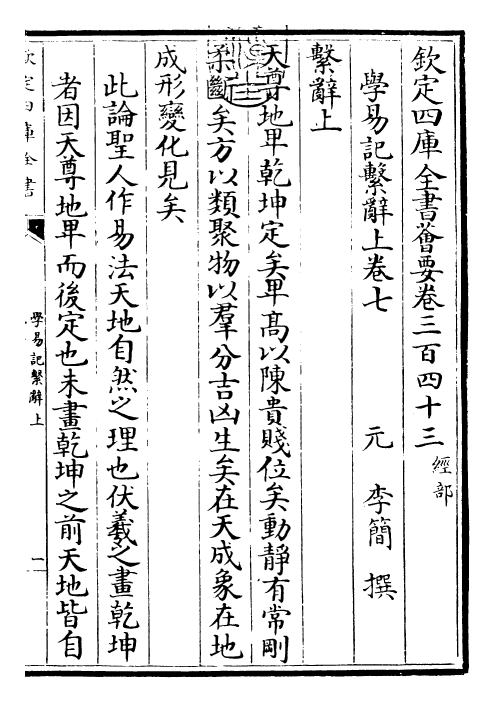 欽定四庫全書薈要卷三百四十三 經部
學易記繫辭上卷七
元 李簡 撰
繫辭上
天尊地卑乾坤定矣卑髙以陳貴賤位矣動靜有常剛
柔斷矣方以類聚物以羣分吉凶生矣在天成象在地
成形變化見矣
此論聖人作易法天地自然之理也伏羲之畫乾坤
者因天尊地卑而後定也未畫乾坤之前天地皆自
欽定四庫全書
學易記繫辭上
一